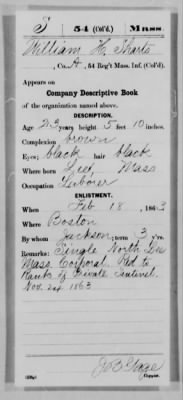 S 54 (Col'd.) Mass.
William H. Sharts
, Co. A, 54 Reg't Mass. Inf. (Col'd.)
Appears on
Company Descriptive Book
of the organization named above.
DESCRIPTION.
Age 23 years; height 5 feet 10 inches.
Complexion brown
Eyes; black hair black
Where born Lee, Mass
Occupation Laborer
ENLISTMENT.
When Feb 18, 1863
Where Boston
By whom Jackson; term 3 y'rs.
Remarks: Single North Lee
Mass. Corporal. Red. to
Ranks of Private
Nov. 24 1863
Copyist.